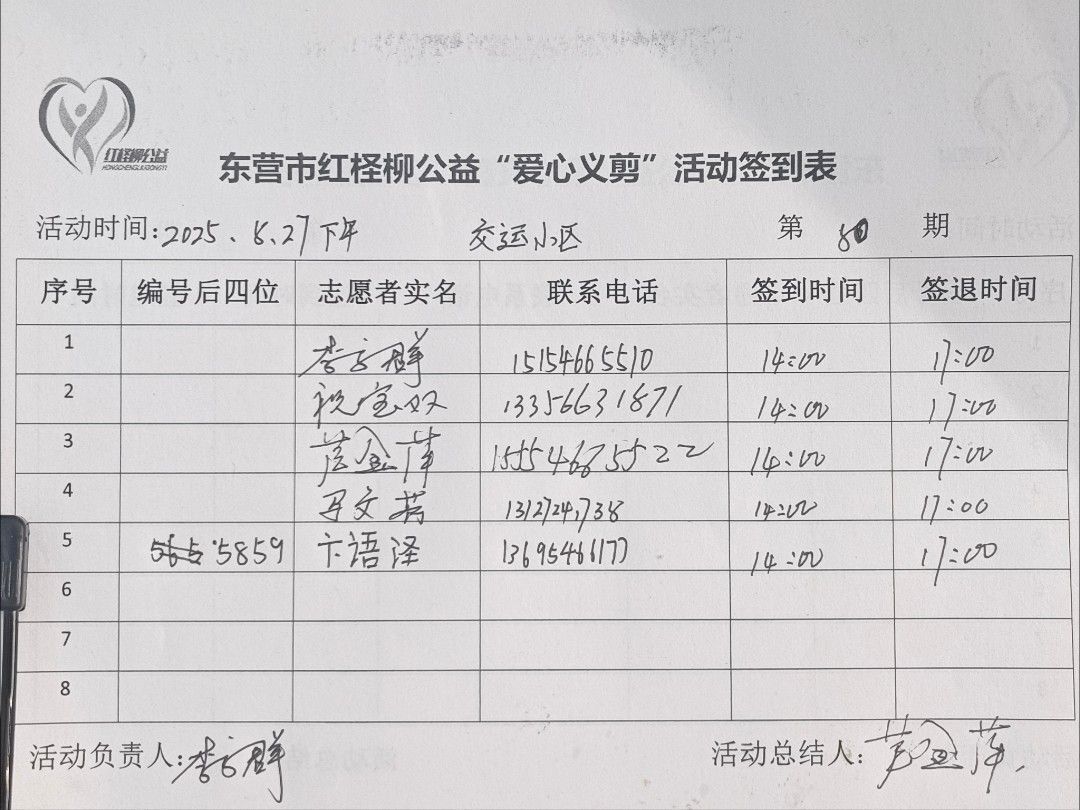 红柽柳公益
HONGCHENGLIUGONGYI
东营市红柽柳公益“爱心义剪”活动签到表
活动时间:2025.8.27下午 交运小区 第 80 期
序号 编号后四位 志愿者实名 联系电话 签到时间 签退时间
1 李方群 15154665510 14:00 17:00
2 祝宝双 13356631871 14:00 17:00
3 金萍 15554685522 14:00 17:00
4 文 14:00 17:00
5 5859 卞语泽 13695466177 14:00 17:00
6
7
8
活动负责人:李方群 活动总结人: 金萍